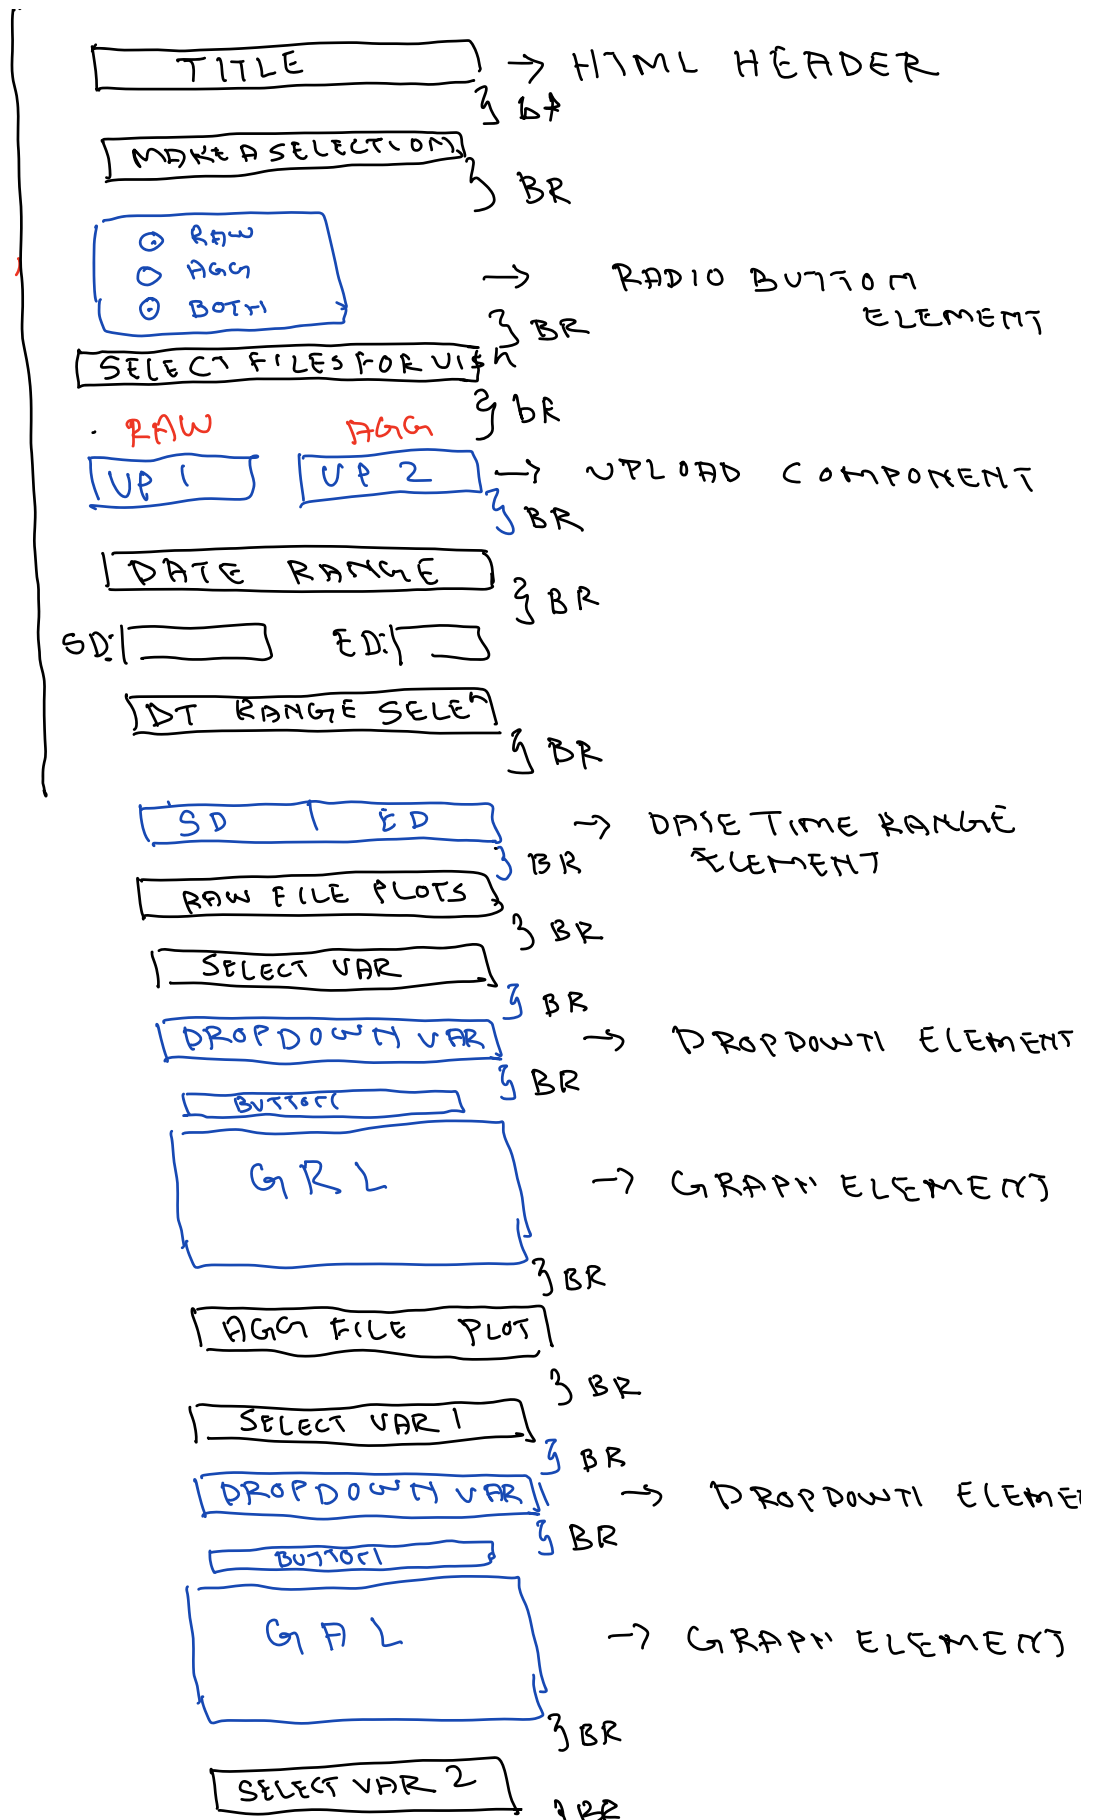 TITLE → HTML HEADER
} br
MAKE A SELECTION
} BR
RAW
AGG
BOTH
→ RADIO BUTTON
ELEMENT
} BR
SELECT FILES FOR VISN
} bR
RAW AGG
UP 1 UP 2 → UPLOAD COMPONENT
} BR
DATE RANGE
} BR
SD: ED:
DT RANGE SELEN
} BR
SD | ED → DATE TIME RANGE
ELEMENT
} BR
RAW FILE PLOTS
} BR
SELECT VAR
} BR
DROPDOWN VAR → DROPDOWN ELEMENT
} BR
BUTTON
GRL → GRAPH ELEMENT
} BR
AGG FILE PLOT
} BR
SELECT VAR 1
} BR
DROPDOWN VAR 1 → DROPDOWN ELEME
} BR
BUTTON
GAL → GRAPH ELEMENT
} BR
SELECT VAR 2
} BR